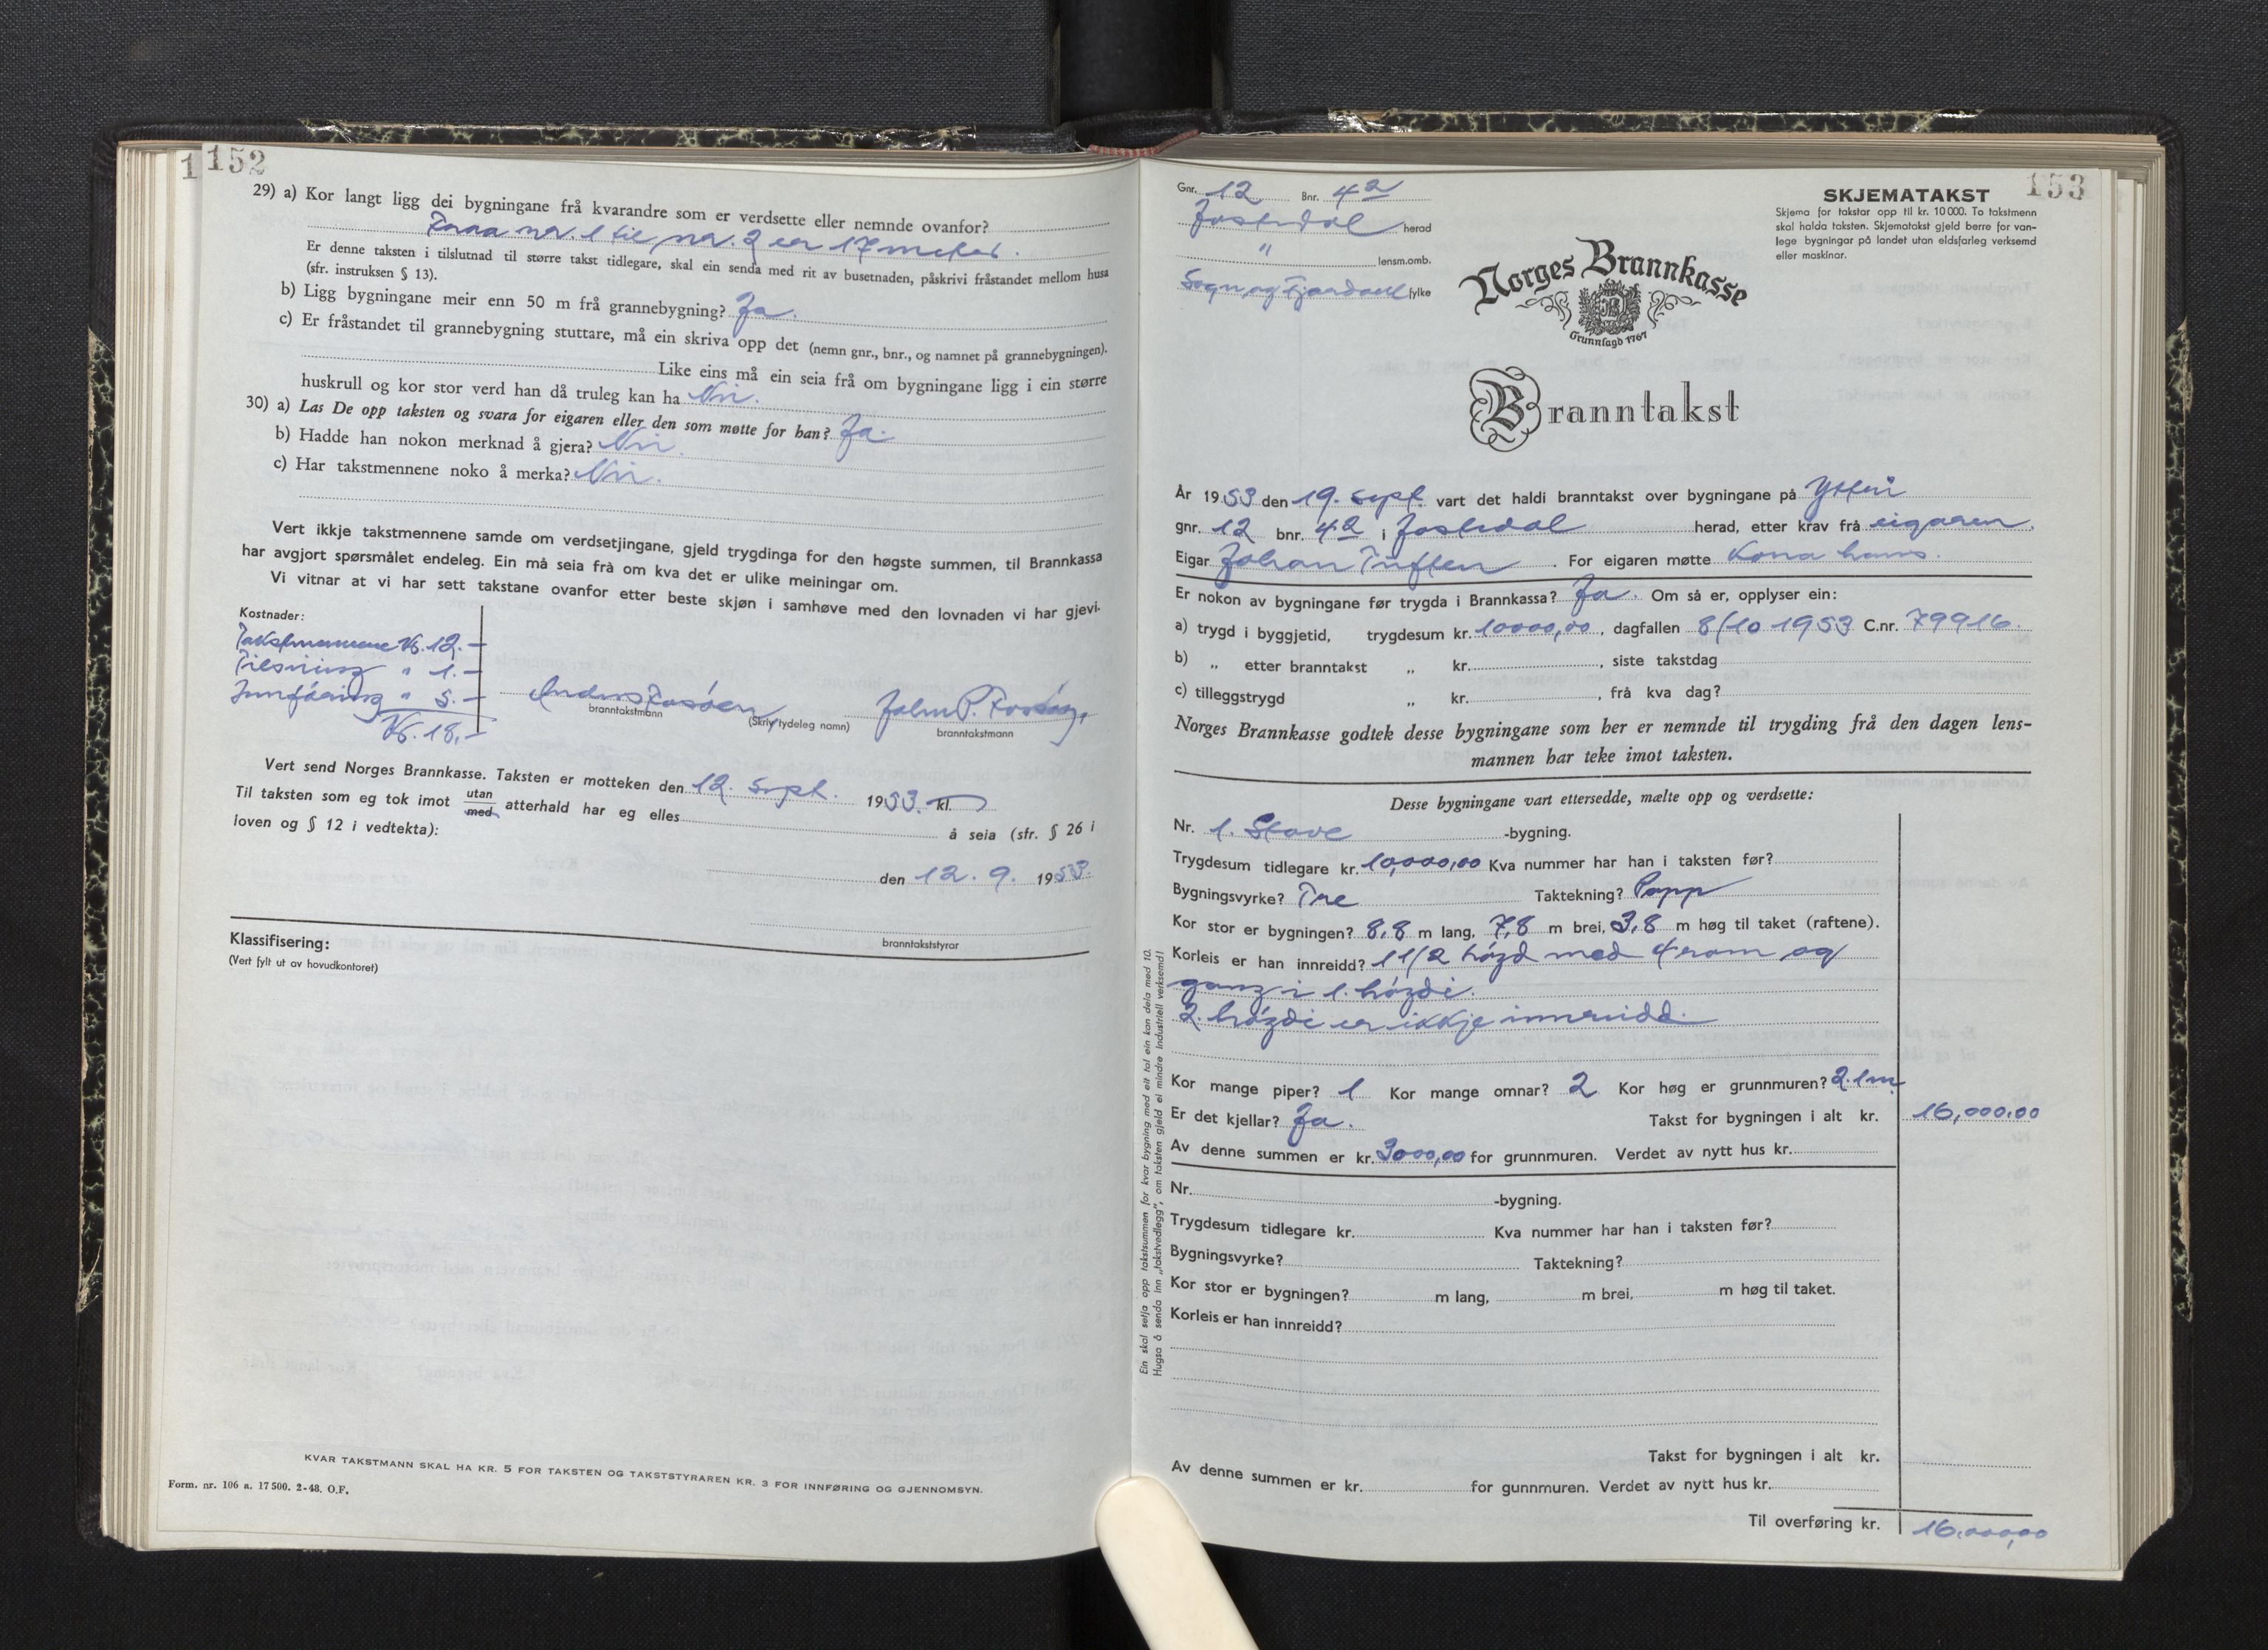 152
29) a) Kor langt ligg dei bygningane frå kvarandre som er verdsette eller nemnde ovanfor?
Fraa nr. 1 til nr. 2 er 17 meter.
Er denne taksten i tilslutnad til større takst tidlegare, skal ein senda med rit av busetnaden, påskrivi fråstandet mellom husa
(sfr. instruksen § 13).
b) Ligg bygningane meir enn 50 m frå grannebygning? Ja.
c) Er fråstandet til grannebygning stuttare, må ein skriva opp det (nemn gnr., bnr., og namnet på grannebygningen).
Like eins må ein seia frå om bygningane ligg i ein større
huskrull og kor stor verd han då truleg kan ha Nei.
30) a) Las De opp taksten og svara for eigaren eller den som møtte for han? Ja.
b) Hadde han nokon merknad å gjera? Nei.
c) Har takstmennene noko å merka? Nei.
Vert ikkje takstmennene samde om verdsetjingane, gjeld trygdinga for den høgste summen, til Brannkassa
har avgjort spørsmålet endeleg. Ein må seia frå om kva det er ulike meiningar om.
Vi vitnar at vi har sett takstane ovanfor etter beste skjøn i samhøve med den lovnaden vi har gjevi.
Kostnader:
Takstmennene Kr. 12.-
Tilsning " 1.-
Innføring " 5.-
Kr. 18.-
Anders Fosøen
branntakstmann
(Skriv tydeleg namn)
John P. Fossøy,
branntakstmann
Vert send Norges Brannkasse. Taksten er motteken den 12. sept. 1953. kl.
Til taksten som eg tok imot utan med atterhald har eg elles å seia (sfr. § 26 i
loven og § 12 i vedtekta):
den 12. 9. 1953.
branntakststyrar
Klassifisering:
(Vert fylt ut av hovudkontoret)
KVAR TAKSTMANN SKAL HA KR. 5 FOR TAKSTEN OG TAKSTSTYRAREN KR. 3 FOR INNFØRING OG GJENNOMSYN.
Form. nr. 106 a. 17 500. 2-48. O.F.
153
Gnr. 12 Bnr. 42
Jostedal herad
" lensm.omb.
Sogn og Fjordane fylke
SKJEMATAKST
Skjema for takstar opp til kr. 10 000. To takstmenn
skal halda taksten. Skjematakst gjeld berre for van-
lege bygningar på landet utan eldsfarleg verksemd
eller maskinar.
Norges Brannkasse
Grunnlagd 1767
Branntakst
År 1953 den 19. sept. vart det haldi branntakst over bygningane på
gnr. 12 bnr. 42 i Jostedal herad, etter krav frå eigaren.
Eigar Johan Tuften. For eigaren møtte Kona hans.
Er nokon av bygningane før trygda i Brannkassa? Ja. Om så er, opplyser ein:
a) trygd i byggjetid, trygdesum kr. 10000,00, dagfallen 8/10 1953 C.nr. 79916.
b) „ etter branntakst „ kr. , siste takstdag
c) tilleggstrygd „ kr. , frå kva dag?
Norges Brannkasse godtek desse bygningane som her er nemnde til trygding frå den dagen lens-
mannen har teke imot taksten.
Desse bygningane vart ettersedde, mælte opp og verdsette:
Nr. 1. Stove -bygning.
Trygdesum tidlegare kr. 10,000,00 Kva nummer har han i taksten før?
Bygningsvyrke? Tre Taktekning? Papp
Kor stor er bygningen? 8,8 m lang, 7,8 m brei, 3,8 m høg til taket (raftene).
Korleis er han innreidd? 1 1/2 høgd med 4 rom og
gang i 1. høgdi.
2. høgdi er ikkje innreidd.
Kor mange piper? 1 Kor mange omnar? 2 Kor høg er grunnmuren? 2.1m
Er det kjellar? Ja. Takst for bygningen i alt kr. 16,000.00
Av denne summen er kr. 3000,00 for grunnmuren. Verdet av nytt hus kr.
Nr. -bygning.
Trygdesum tidlegare kr. Kva nummer har han i taksten før?
Bygningsvyrke? Taktekning?
Kor stor er bygningen? m lang, m brei, m høg til taket.
Korleis er han innreidd?
Takst for bygningen i alt kr.
Av denne summen er kr. for gunnmuren. Verdet av nytt hus kr.
Til overføring kr. 16.000,00
Ein skal setja opp takstsummen for kvar bygning med eit tal ein kan dela med 10.
Hugsa å senda inn „takstvedlegg", om taksten gjeld ei mindre industriell verksemd!